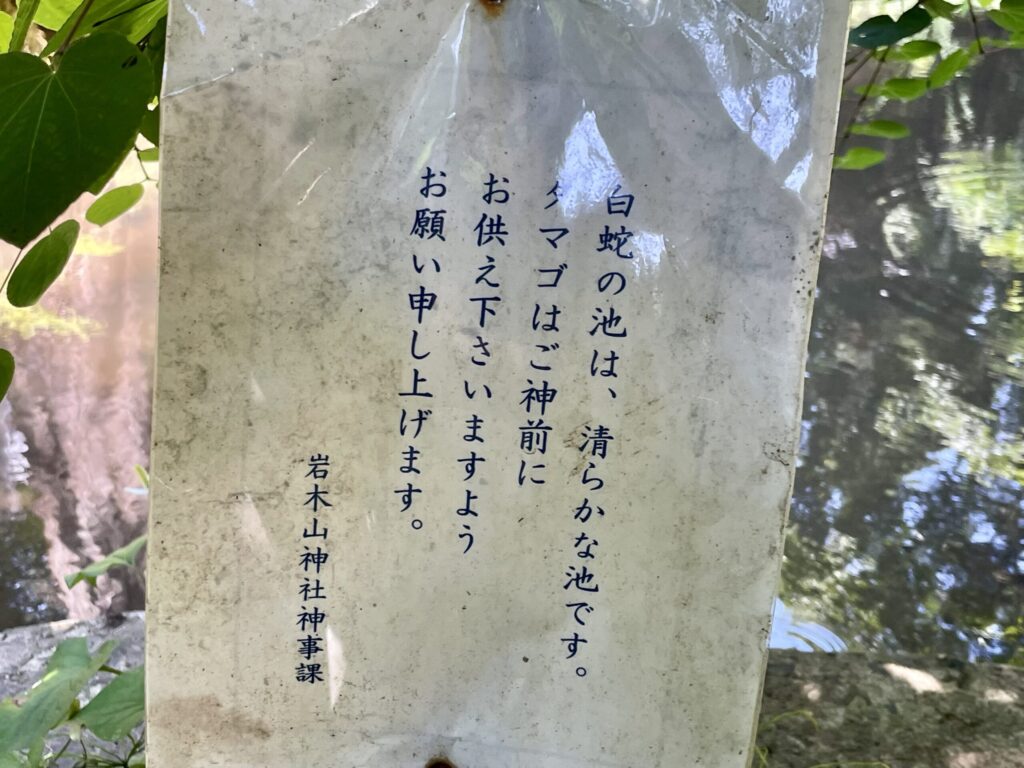 白蛇の池は、清らかな池です。
タマゴはご神前に
お供え下さいますよう
お願い申し上げます。
岩木山神社神事課